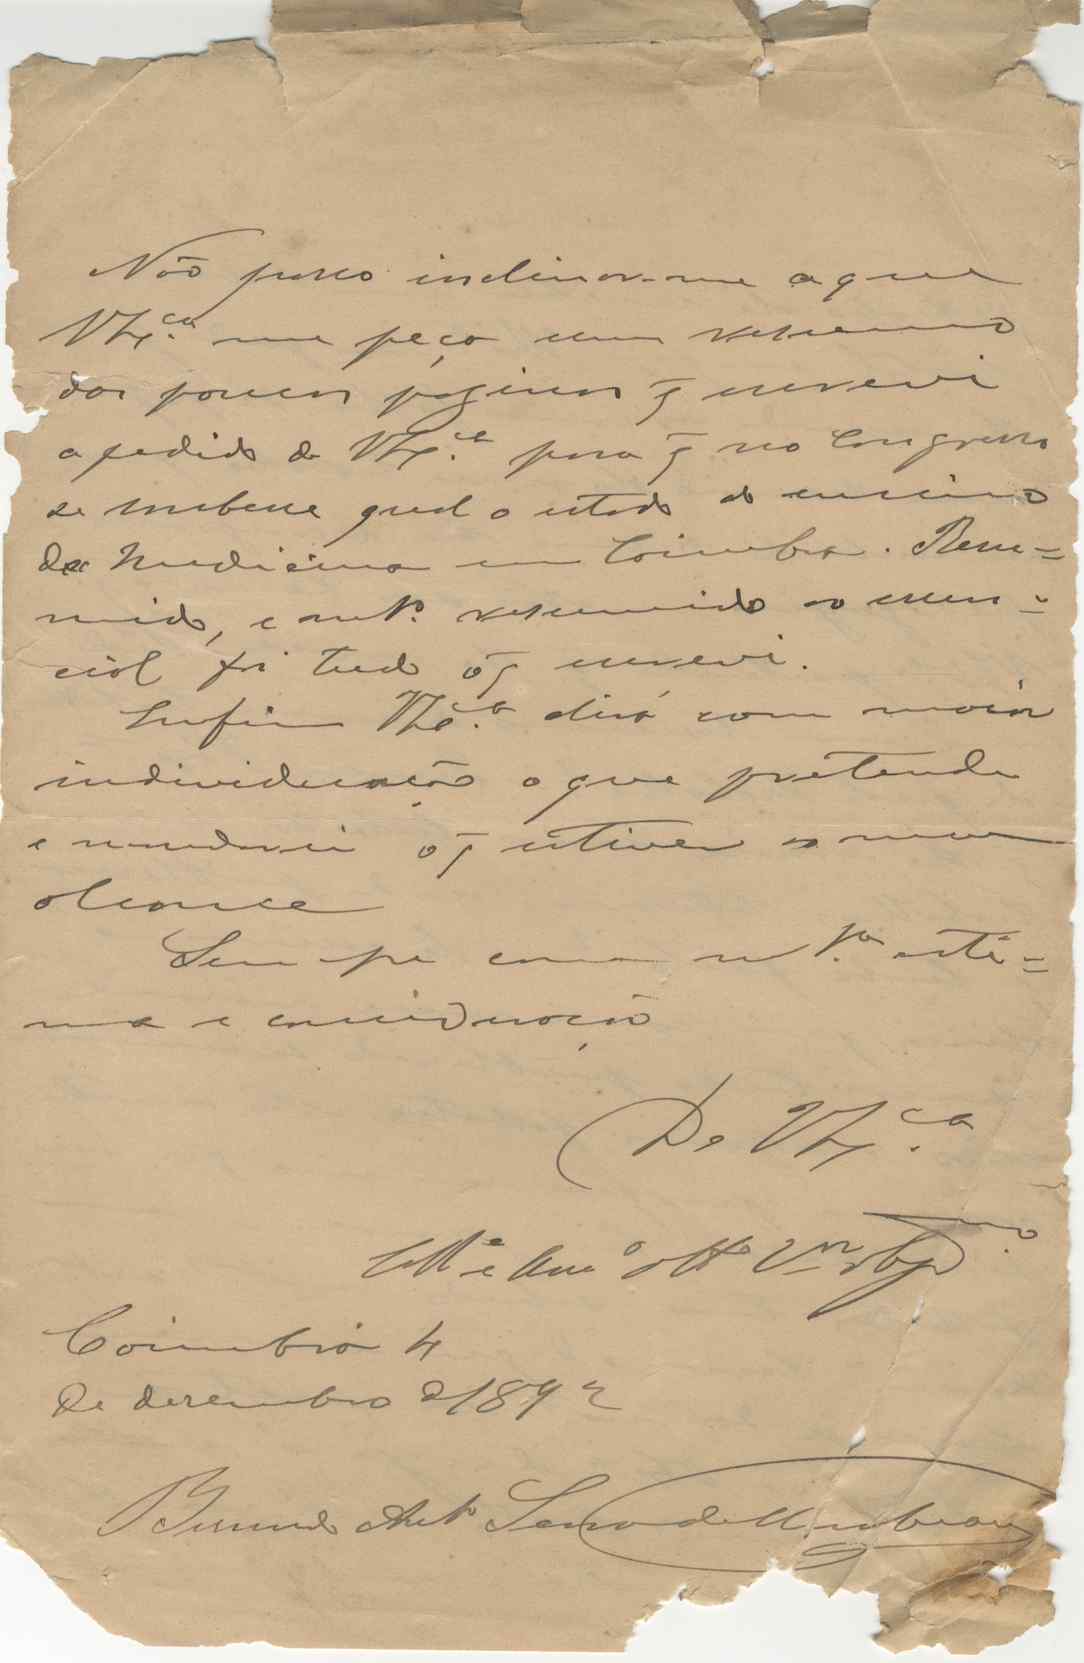 Não posso inclinar-me a que
V Ex.cia me peça um resumo
das poucas paginas q̃ escrevi
a pedido de V Ex.cia para q̃ no Congresso
se soubesse qual o estado do ensino
de Medicina em Coimbra. Resu=
mido, e mt.o resumido ao essen=
cial foi tudo o q̃ escrevi.
Enfim V Ex.cia dirá com maior
individuação o que pretende
e mandarei o q̃ estiver ao meu
alcance
Sempre com mt.a esti=
ma e consideração
De V Ex.ca
Coll.e e Am.o mt.o
Coimbra 4
de dezembro de 1892
Bernardo Ant.o Serra de Mirabeau